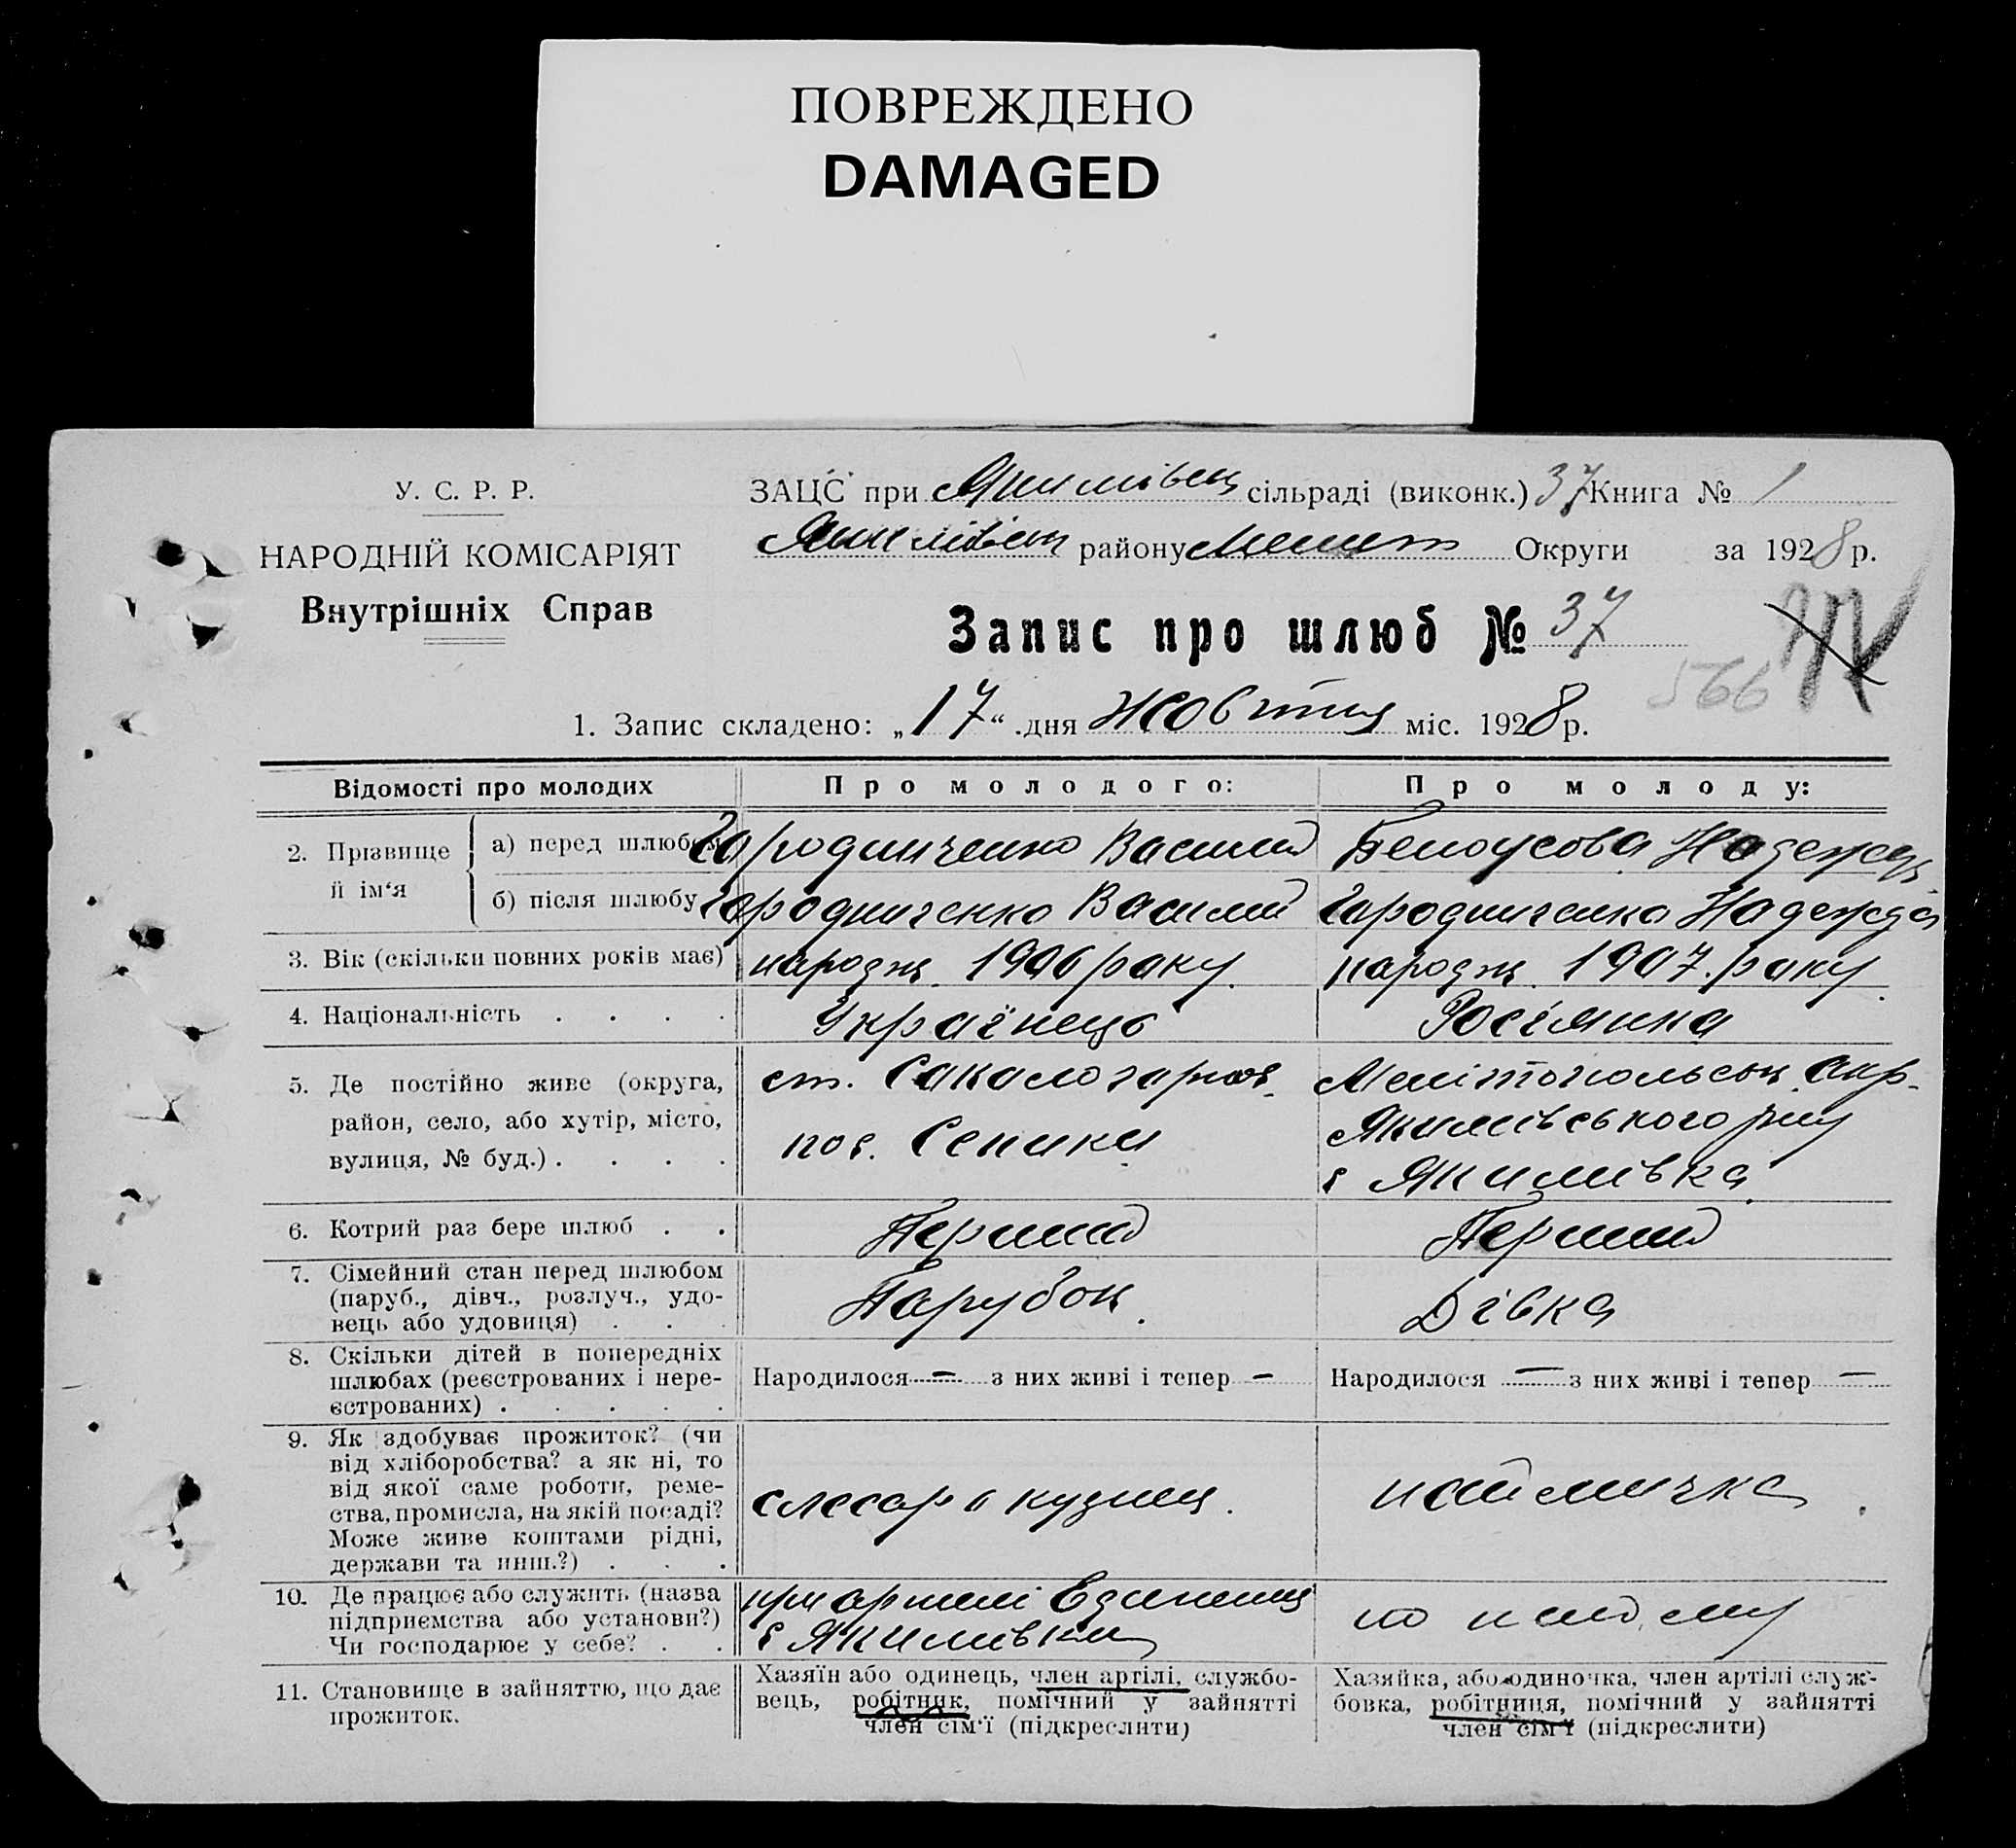 ПОВРЕЖДЕНО
DAMAGED
У. С. Р. Р.
НАРОДНІЙ КОМІСАРІЯТ
Внутрішніх Справ
ЗАЦС при Якимівськ сільраді (виконк.) 37 Книга № 1
Якимівськ району Мелит Округи за 1928 р.
Запис про шлюб № 37
566
1. Запис складено: „17“ дня Жовтня міс. 1928 р.
Відомості про молодих
Про молодого:
Про молоду:
2. Прізвище й ім‘я
а) перед шлюбом
Городниченко Василий
Белоусова Надежда
б) після шлюбу
Городниченко Василий
Городниченко Надежда
3. Вік (скільки повних років має)
народж. 1906 року.
народж. 1907. року
4. Національність . . . .
Українець
Росіянка
5. Де постійно живе (округа,
район, село, або хутір, місто,
вулиця, № буд.) . . . .
ст. Сакологорнов.
пос.
Мелітопольськ. окр.
Якимівського р-ну
с Якимівка
6. Котрий раз бере шлюб . .
Перший
Перший
7. Сімейний стан перед шлюбом
(паруб., дівч., розлуч., удо-
вець або удовиця) . . .
Парубок.
Дівка
8. Скільки дітей в попередніх
шлюбах (реєстрованих і нере-
єстрованих) . . . . .
Народилося — з них живі і тепер —
Народилося — з них живі і тепер —
9. Як здобуває прожиток? (чи
від хліборобства? а як ні, то
від якої саме роботи, реме-
ства, промисла, на якій посаді?
Може живе коштами рідні,
держави та инш.?) . . .
слесарь кузнец.
наймичка
10. Де працює або служить (назва
підприємства або установи?)
Чи господарює у себе? . .
при артилі Единение
с Якимівки
по найому
11. Становище в зайняттю, що дає
прожиток.
Хазяїн або одинець, член артілі, службо-
вець, робітник, помічний у зайнятті
член сім‘ї (підкреслити)
Хазяйка, або одиночка, член артілі служ-
бовка, робітниця, помічний у зайнятті
член сім‘ї (підкреслити)